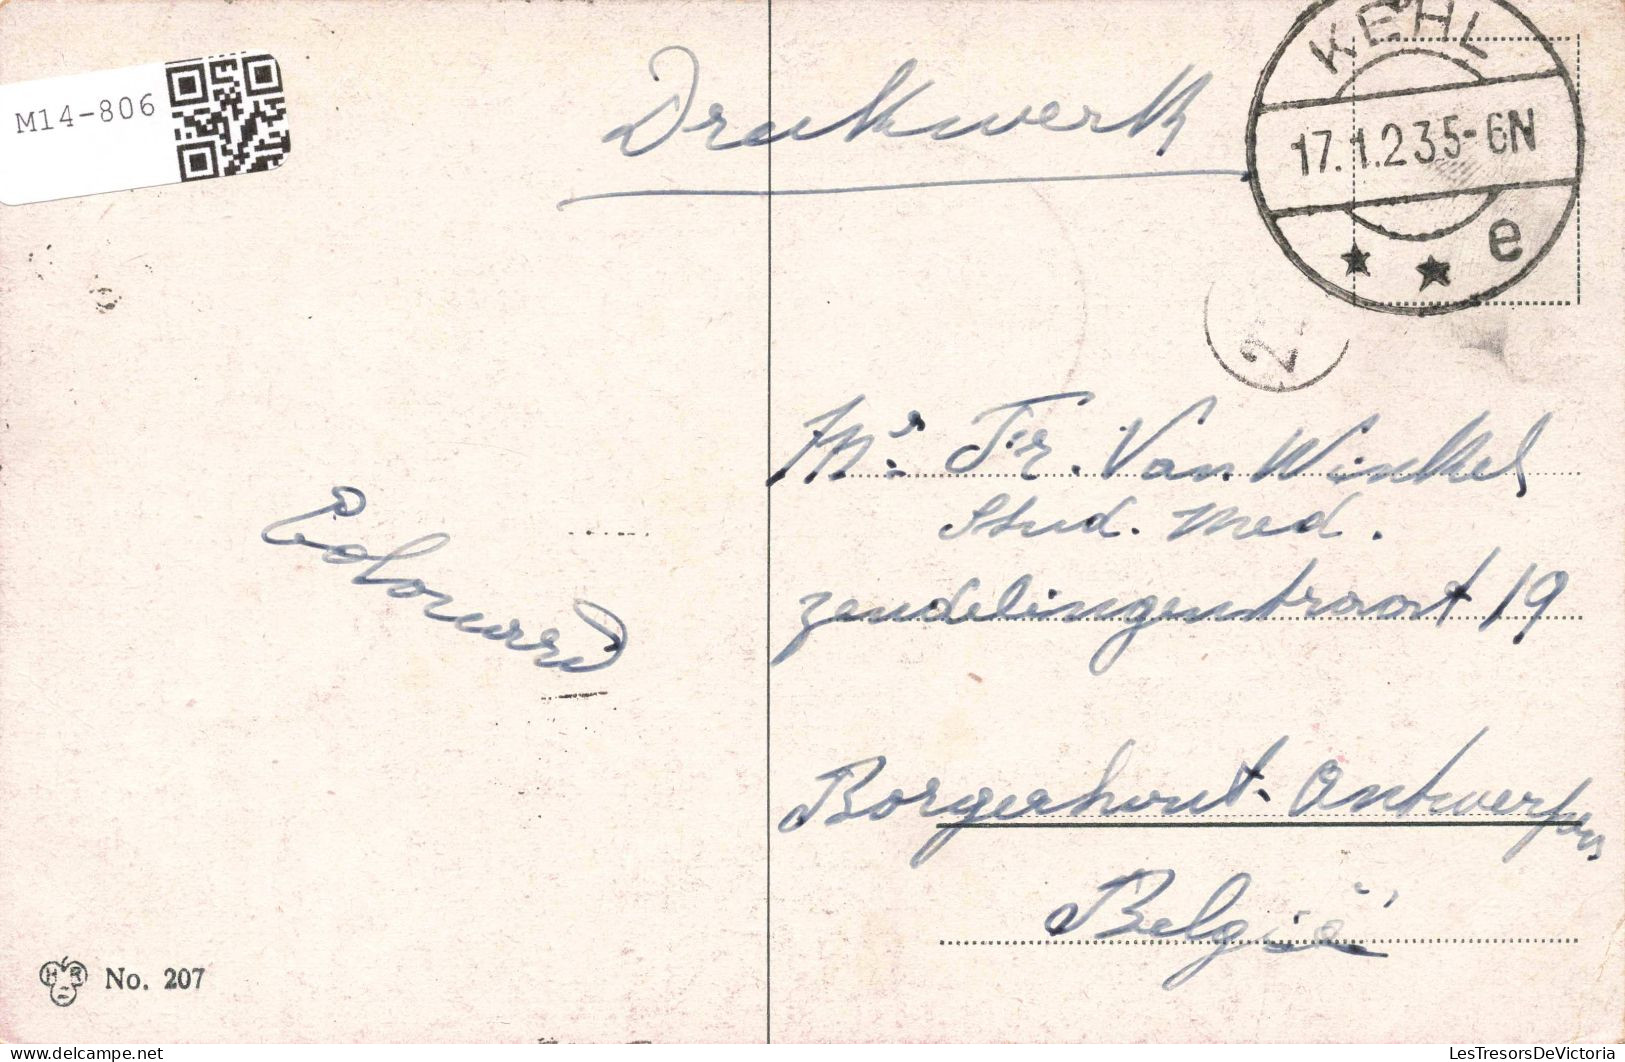 M14-806
Drukwerk
KEHL
17.1.23 5-6N
e
2
Mr. Fr. Van Winkel
Stud. Med.
Zendelingenstraat 19
Edouard
Borgerhout-Antwerpen
België
HR No. 207
LesTresorsDeVictoria